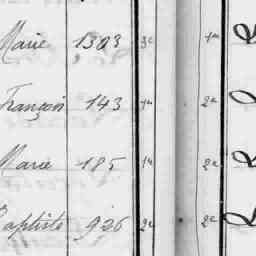 Marie 1303 3e 1re
François 143 1re 2e
Marie 185 1re 2e
Baptiste 926 2e 2e